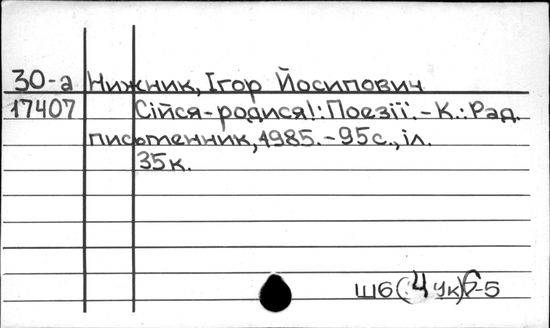 30-а Нижник, Ігор Йосипович
17407 Сійся-родися!: Поезії. - К.: Рад.
письменник, 1985. - 95с., іл.
35к.
Ш6(4Ук)6-5